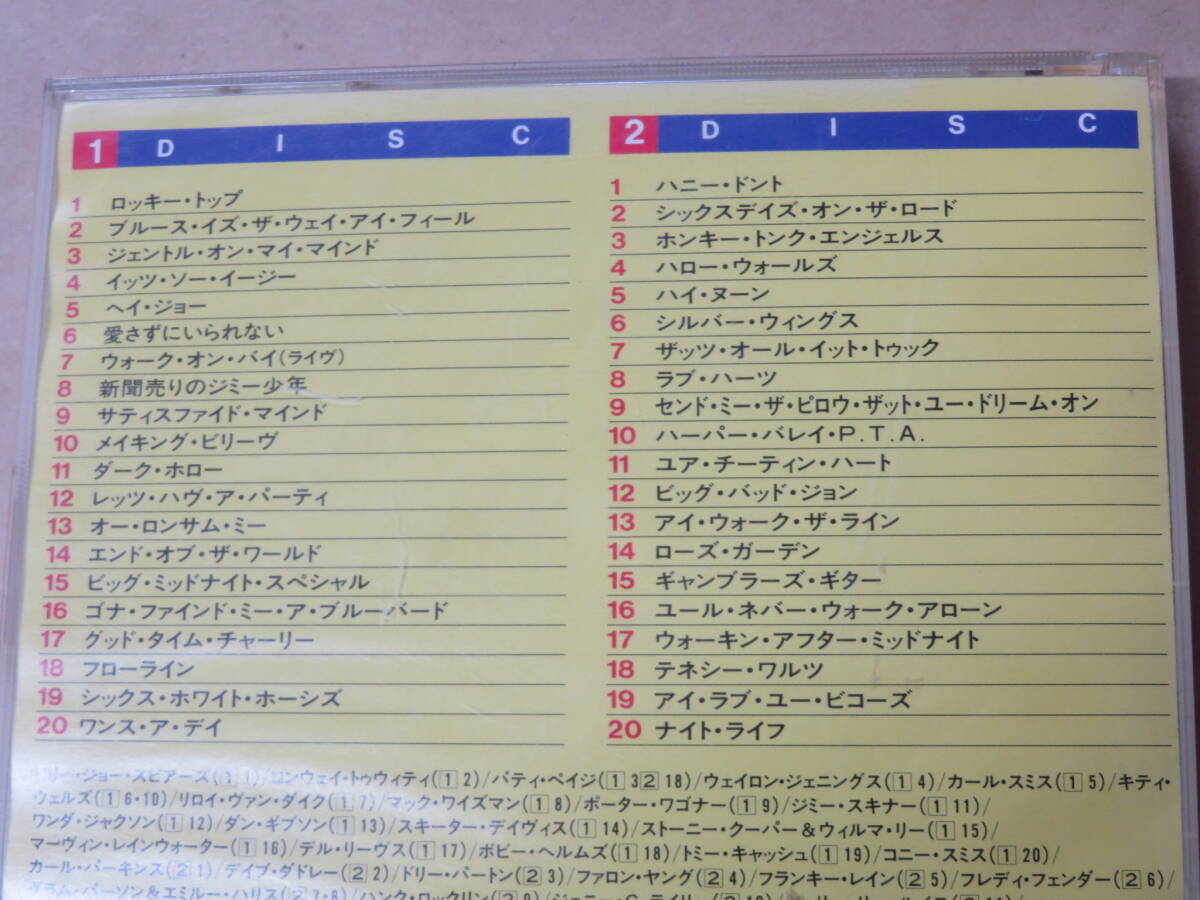 1 DISC
1 ロッキー・トップ
2 ブルース・イズ・ザ・ウェイ・アイ・フィール
3 ジェントル・オン・マイ・マインド
4 イッツ・ソー・イージー
5 ヘイ・ジョー
6 愛さずにいられない
7 ウォーク・オン・バイ(ライヴ)
8 新聞売りのジミー少年
9 サティスファイド・マインド
10 メイキング・ビリーヴ
11 ダーク・ホロー
12 レッツ・ハヴ・ア・パーティ
13 オー・ロンサム・ミー
14 エンド・オブ・ザ・ワールド
15 ビッグ・ミッドナイト・スペシャル
16 ゴナ・ファインド・ミー・ア・ブルーバード
17 グッド・タイム・チャーリー
18 フローライン
19 シックス・ホワイト・ホーシズ
20 ワンス・ア・デイ
2 DISC
1 ハニー・ドント
2 シックスデイズ・オン・ザ・ロード
3 ホンキー・トンク・エンジェルス
4 ハロー・ウォールズ
5 ハイ・ヌーン
6 シルバー・ウィングス
7 ザッツ・オール・イット・トゥック
8 ラブ・ハーツ
9 センド・ミー・ザ・ピロウ・ザット・ユー・ドリーム・オン
10 ハーパー・バレイ・P.T.A.
11 ユア・チーティン・ハート
12 ビッグ・バッド・ジョン
13 アイ・ウォーク・ザ・ライン
14 ローズ・ガーデン
15 ギャンブラーズ・ギター
16 ユール・ネバー・ウォーク・アローン
17 ウォーキン・アフター・ミッドナイト
18 テネシー・ワルツ
19 アイ・ラブ・ユー・ビコーズ
20 ナイト・ライフ
リー・ジョー・スピアーズ(1 1)/コンウェイ・トゥウィティ(1 2)/パティ・ペイジ(1 3 2 18)/ウェイロン・ジェニングス(1 4)/カール・スミス(1 5)/キティ・
ウェルズ(1 6・10)/リロイ・ヴァン・ダイク(1 7)/マック・ワイズマン(1 8)/ポーター・ワゴナー(1 9)/ジミー・スキナー(1 11)/
ワンダ・ジャクソン(1 12)/ダン・ギブソン(1 13)/スキーター・デイヴィス(1 14)/ストーニー・クーパー&ウィルマ・リー(1 15)/
マーヴィン・レインウォーター(1 16)/デル・リーヴス(1 17)/ボビー・ヘルムズ(1 18)/トミー・キャッシュ(1 19)/コニー・スミス(1 20)/
カール・パーキンス(2 1)/デイブ・ダドレー(2 2)/ドリー・パートン(2 3)/ファロン・ヤング(2 4)/フランキー・レイン(2 5)/フレディ・フェンダー(2 6)/
グラム・パーソン&エミルー・ハリス(2 7・8)/ハンク・ロックリン(2 9)/ジェニー・C・ライリー(2 10)/